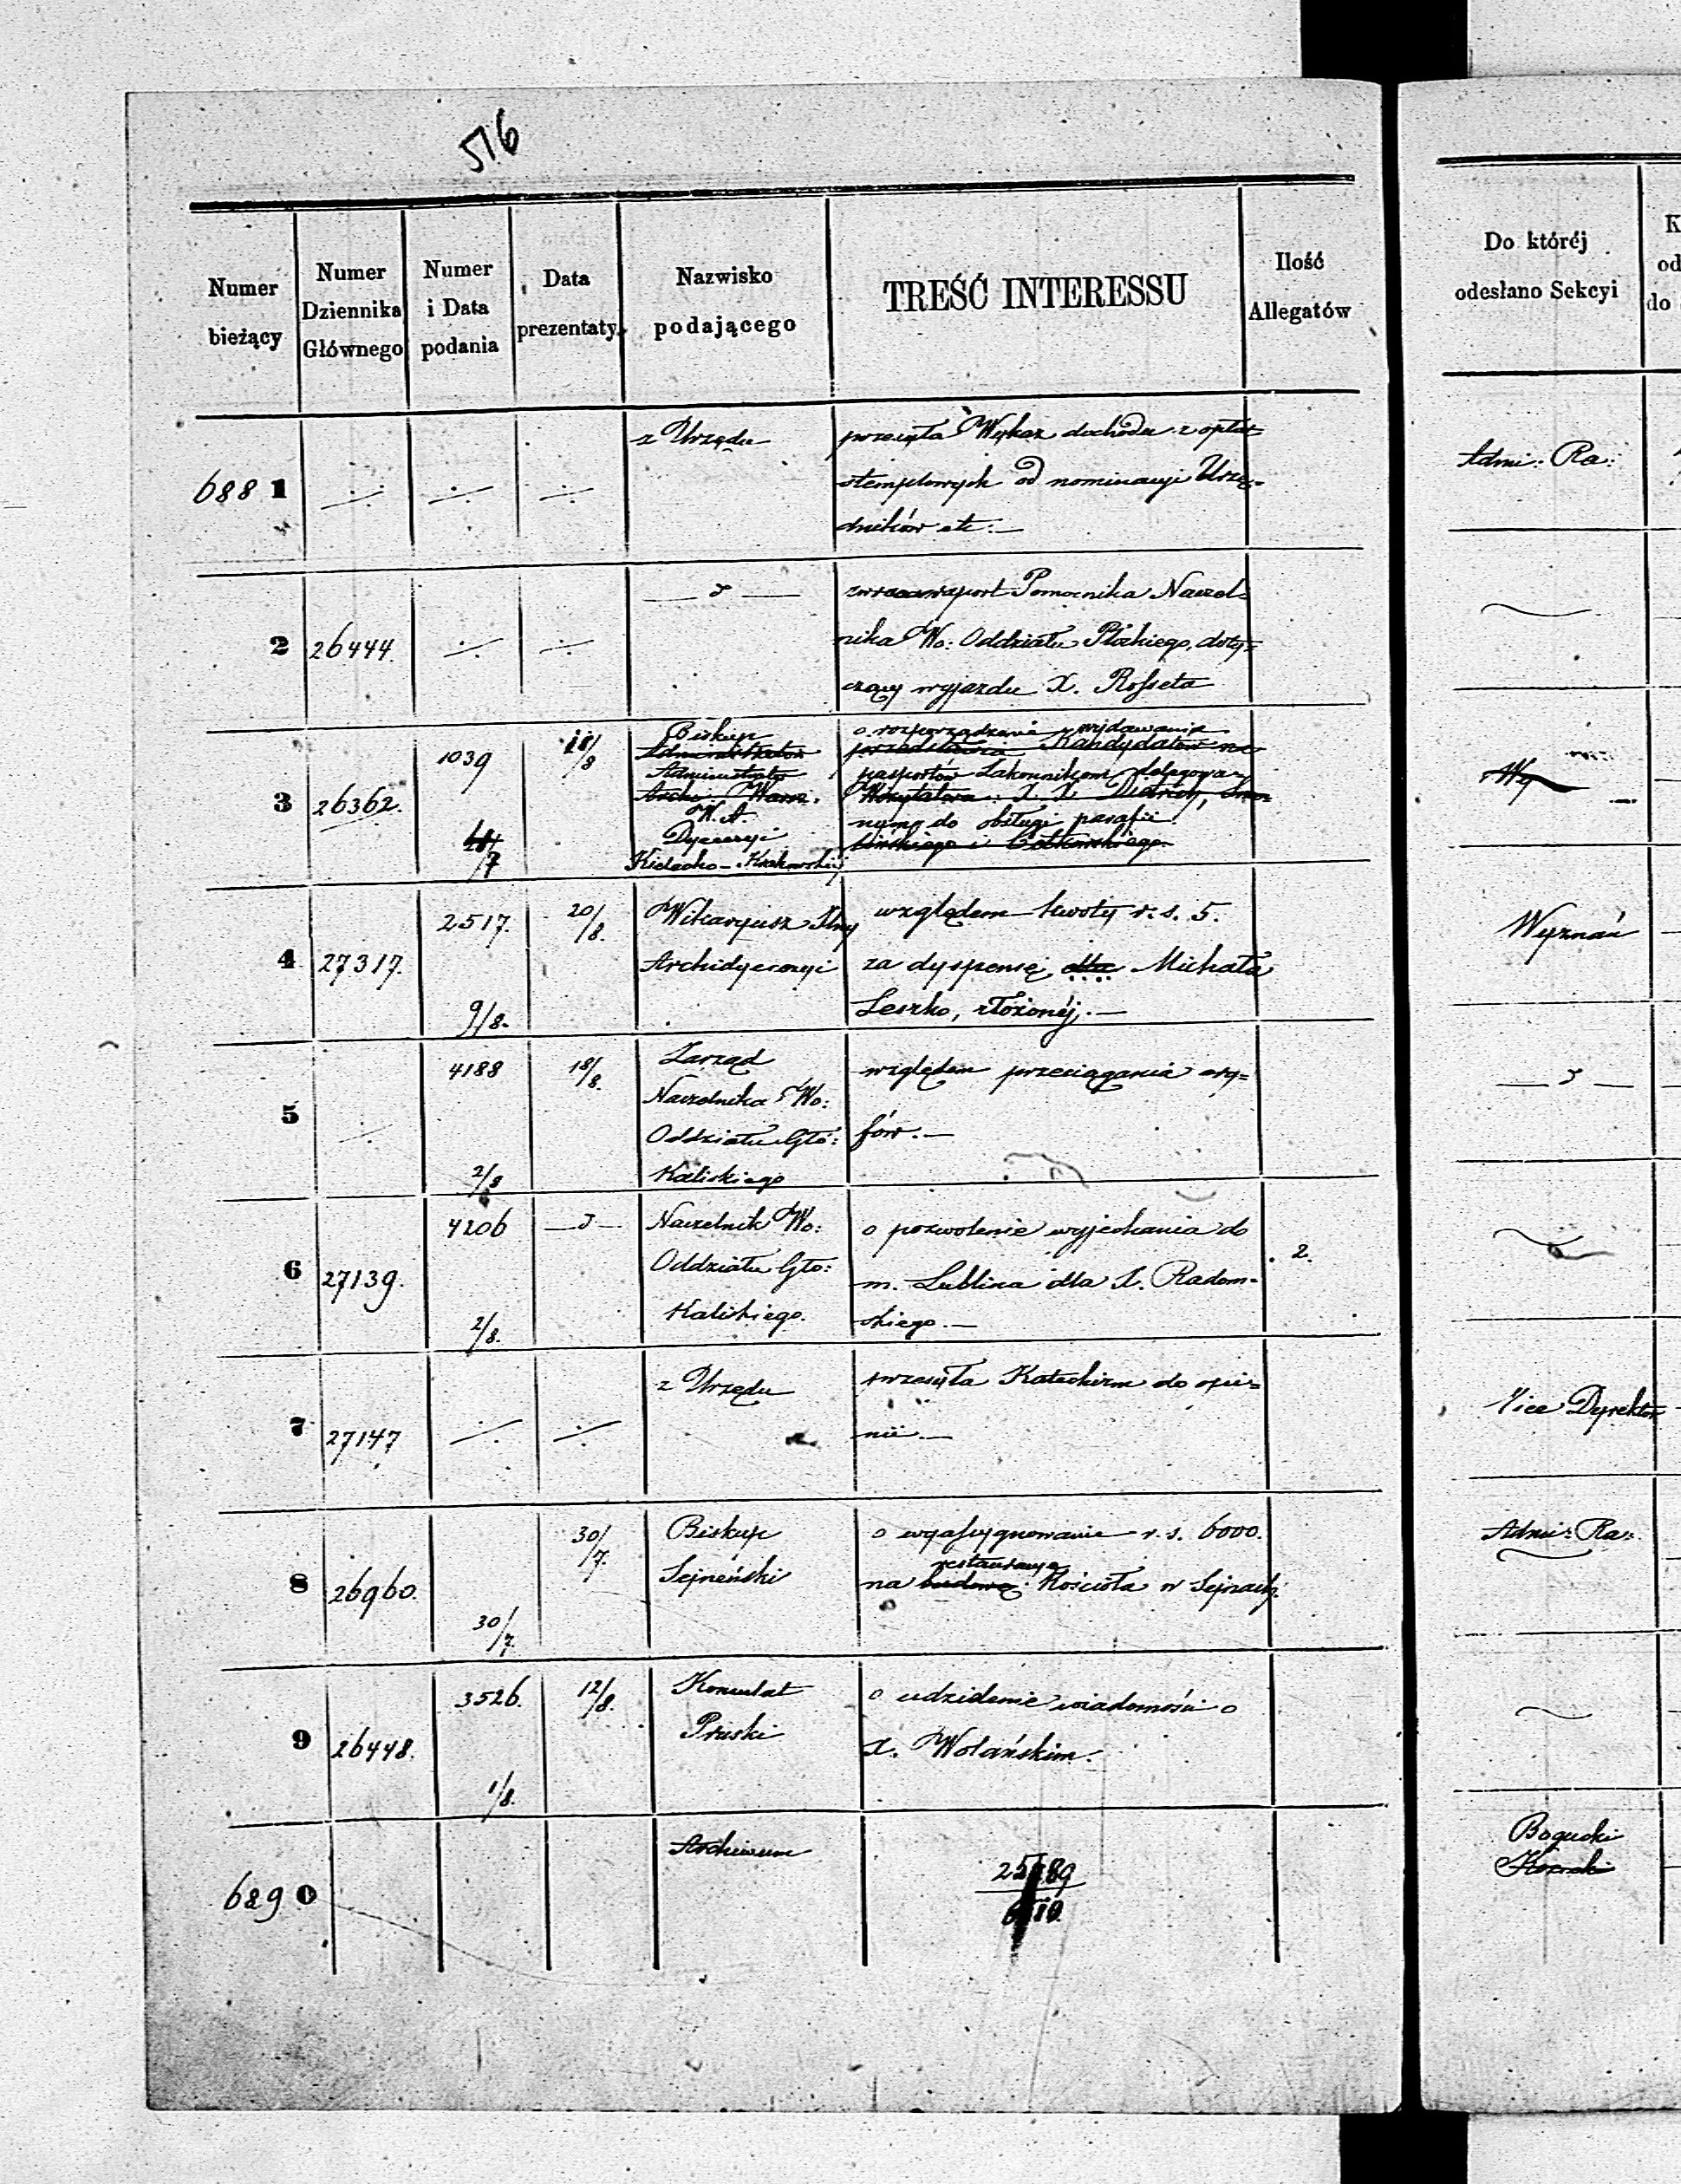 516
Numer bieżący
Numer Dziennika Głównego
Numer i Data podania
Data prezentaty
Nazwisko podającego
TREŚĆ INTERESSU
Ilość Allegatów
Do któréj odesłano Sekcyi
K
od
do
688 1
z Urzędu
przesyła Wykaz dochodu z opłat
stemplowych od nominacyi Urzę=
dników etc:—
Admi: Ra:
2
26444.
zwraca raport Pomocnika Naczel=
nika Wo: Oddziału Płockiego, doty=
czący wyjazdu X. Rosseta
3
26362.
1039
/7
18/8
Biskup
Administrator
Administrator
Archi: Warsz:
W. A.
Dyecezyi
Kielecko-Krakowskiéj
o rozporządzenie wydawania
przedstawia Kandydatów na
pasportów Zakonnikom delegowa=
X. X. Dietrich,
nym do obsługi parafii
i
Wy
4
27317.
2517.
9/8.
20/8.
Wikaryusz Jlny
Archidyecezyi
względem kwoty r. s. 5.
za dyspensę dla Michała
Leszko, złożonéj.—
Wyznań
5
4188
2/8
18/8.
Zarząd
Naczelnika Wo:
Oddziału Głó:
Kaliskiego
względem przeciągania
fów.—
6
27139.
4206
2/8.
Naczelnik Wo:
Oddziału Głó:
Kaliskiego.
o pozwolenie wyjechania do
m. Lublina dla X. Radom=
skiego.—
2.
7
27147
z Urzędu
przesyła Katechizm do opi=
nii.—
Vice Dyrektor
8
26960.
30/7.
30/7.
Biskup
Sejneński
o wyasygnowanie r. s. 6000.
restauracyę
na budowę Kościoła w Sejnach.
Admi: Ra:
9
26448.
3526.
1/8.
12/8.
Konsulat
Pruski
o udzielenie wiadomości o
X. Wolańskim.
689 0
Archiwum
Bogucki